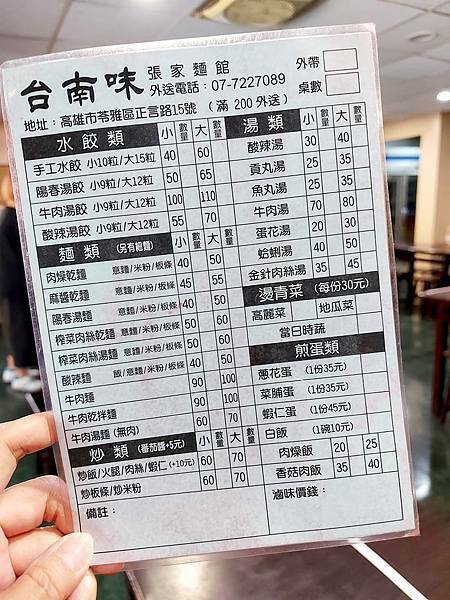 台南味 張家麵館
外送電話：07-7227089
地址：高雄市苓雅區正言路15號（滿 200 外送）
外帶
桌數
水餃類 小 數量 大 數量
手工水餃 小10粒/大15粒 40 60
陽春湯餃 小9粒/大12粒 50 65
牛肉湯餃 小9粒/大12粒 100 110
酸辣湯餃 小9粒/大12粒 55 70
麵類 小 數量 大 數量
肉燥乾麵 意麵/米粉/板條 40 50
麻醬乾麵 意麵/米粉/板條 45 55
陽春湯麵 意麵/米粉/板條 40 50
榨菜肉絲乾麵 意麵/米粉/板條 50 60
榨菜肉絲湯麵 意麵/米粉/板條 50 60
酸辣麵 飯/意麵/米粉/板條 40 50
牛肉麵 90 100
牛肉乾拌麵 90 100
牛肉湯麵（無肉） 60 70
炒類（番茄醬+5元） 小 數量 大 數量
炒飯/火腿/肉絲/蝦仁（+10元） 60 70
炒板條/炒米粉 60 70
備註：
湯類 小 數量 大 數量
酸辣湯 30 40
貢丸湯 25 35
魚丸湯 25 35
牛肉湯 70 80
蛋花湯 20 30
蛤蜊湯 40 50
金針肉絲湯 35 45
燙青菜（每份30元）
高麗菜 地瓜菜
當日時蔬
煎蛋類
蔥花蛋（1份35元）
菜脯蛋（1份35元）
蝦仁蛋（1份45元）
白飯（1碗10元）
肉燥飯 20 25
香菇肉飯 35 40
滷味價錢：